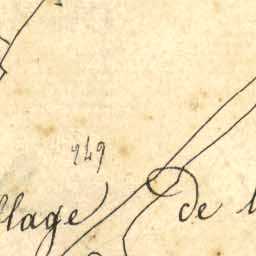 949
llage de l